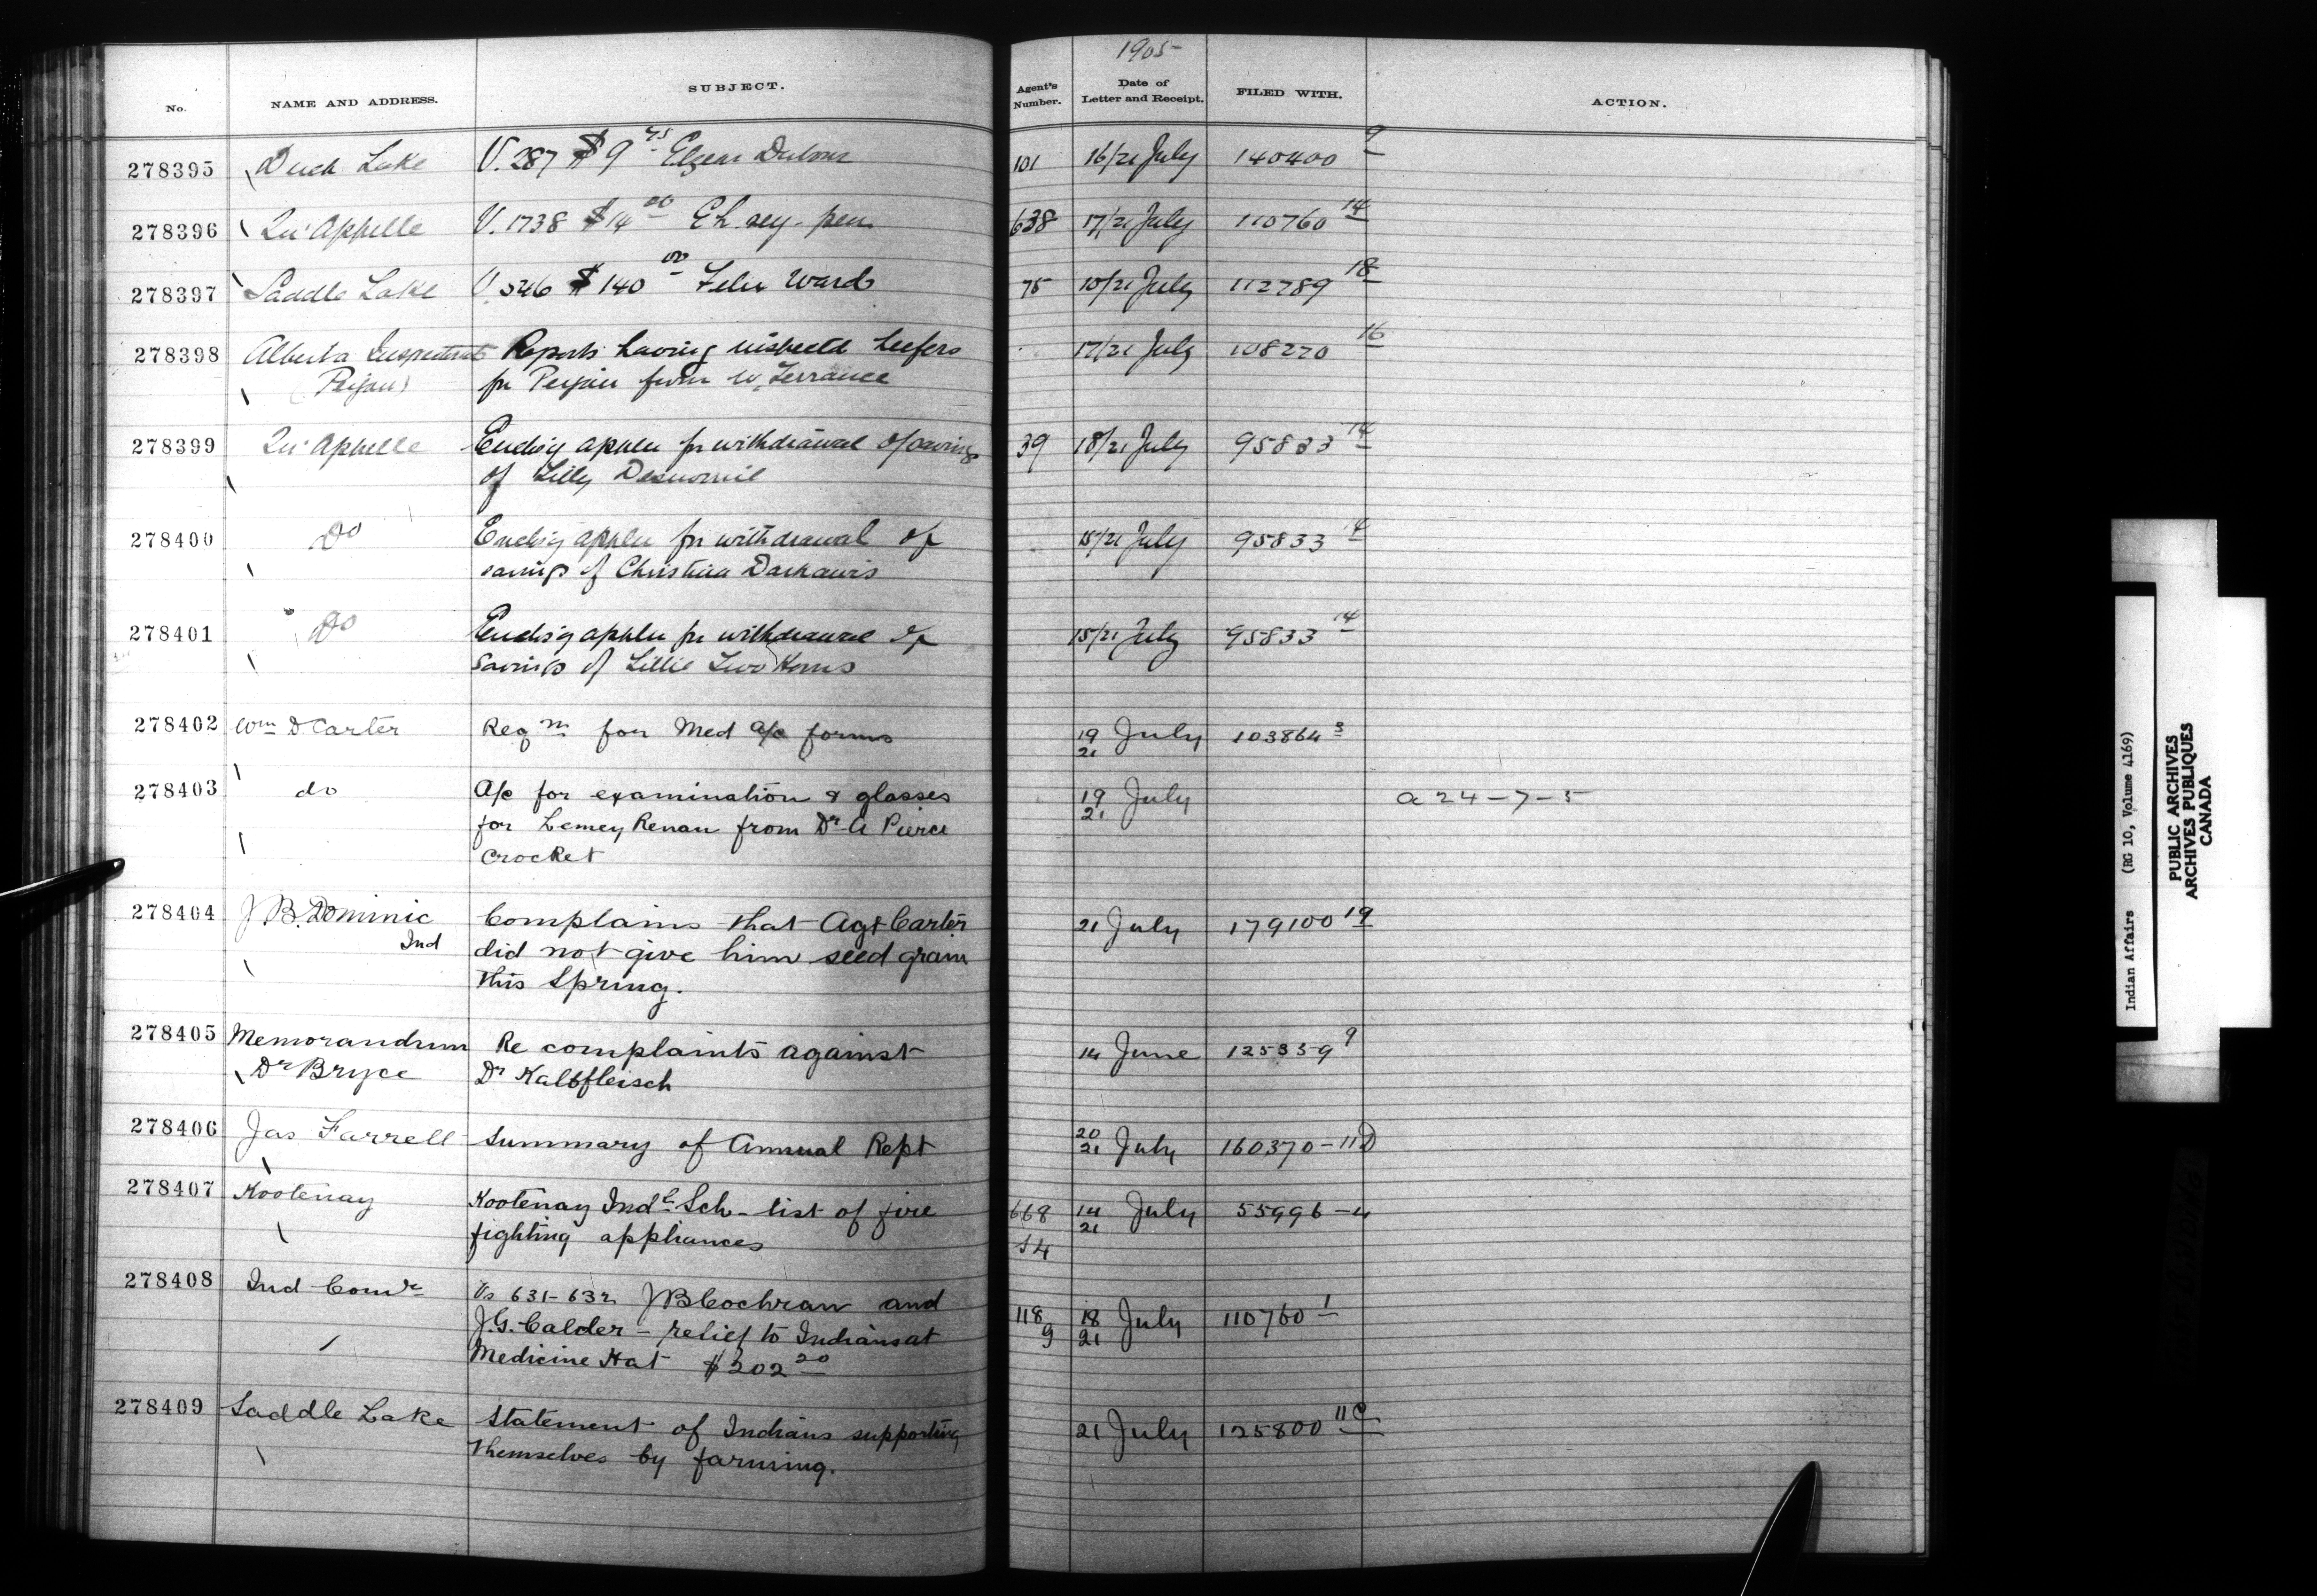 1905
No. NAME AND ADDRESS. SUBJECT. Agent's Number. Date of Letter and Receipt. FILED WITH. ACTION.
278395 Duck Lake V. 287 $9 75 101 16/21 July 140400 9
278396 Qu'Appelle V. 1738 $14 00 638 17/21 July 110760 14
278397 Saddle Lake V. 526 $140 00 Felix Ward 75 10/21 July 112789 18
278398 Alberta Inspectorate Reports having inspected heifers 17/21 July 108270 16
(Peigan) for Peigan from W. Terrance
278399 Qu'Appelle Encls'g applen for withdrawal of savings 39 18/21 July 95833 14
of Lilly
278400 Do Encls'g applen for withdrawal of 15/21 July 95833 14
savings of Christina
278401 Do Encls'g applen for withdrawal of 15/21 July 95833 14
Savings of Lillie Two Horns
278402 Wm D Carter Reqn for Med a/c forms 19/21 July 103864 3
278403 do A/c for examination & glasses 19/21 July a 24-7-5
for Lemey Renau from Dr A Pierce
Crocket
278404 J B. Dominic Complains that Agt Carter 21 July 179100 19
Ind did not give him seed grain
this Spring.
278405 Memorandum Re complaints against 14 June 125339 9
Dr Bryce Dr Kalbfleisch
278406 Jas Farrell Summary of Annual Rept 20/21 July 160370-11D
278407 Kootenay Kootenay Indl Sch - list of fire 668 14/21 July 55996-4
fighting appliances 54
278408 Ind Comr Vs 631-632 J B Cochran and 118 18/21 July 110760 1
J.G. Calder - relief to Indians at 9
Medicine Hat $202 20
278409 Saddle Lake Statement of Indians supporting 21 July 125800 11C
themselves by farming.
Indian Affairs (RG 10, Volume 4169)
PUBLIC ARCHIVES
ARCHIVES PUBLIQUES
CANADA